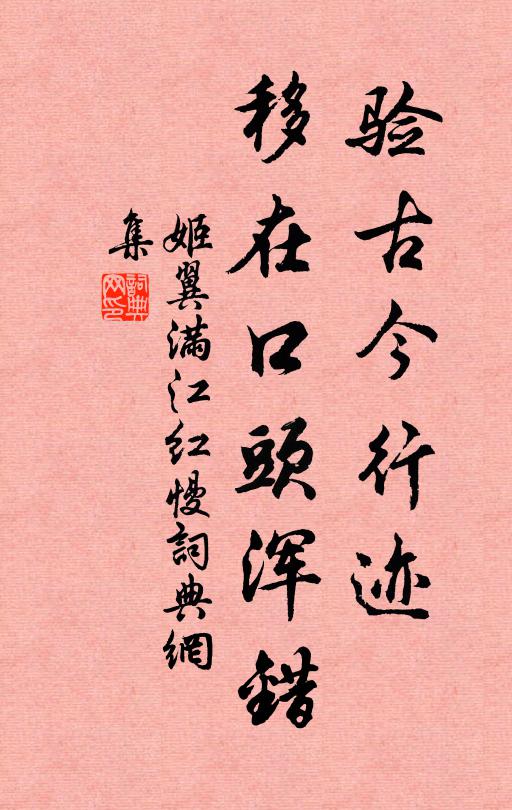 验古今行迹
移在口頭浑錯
姬翼满江红慢詞典網
集
詞典网印